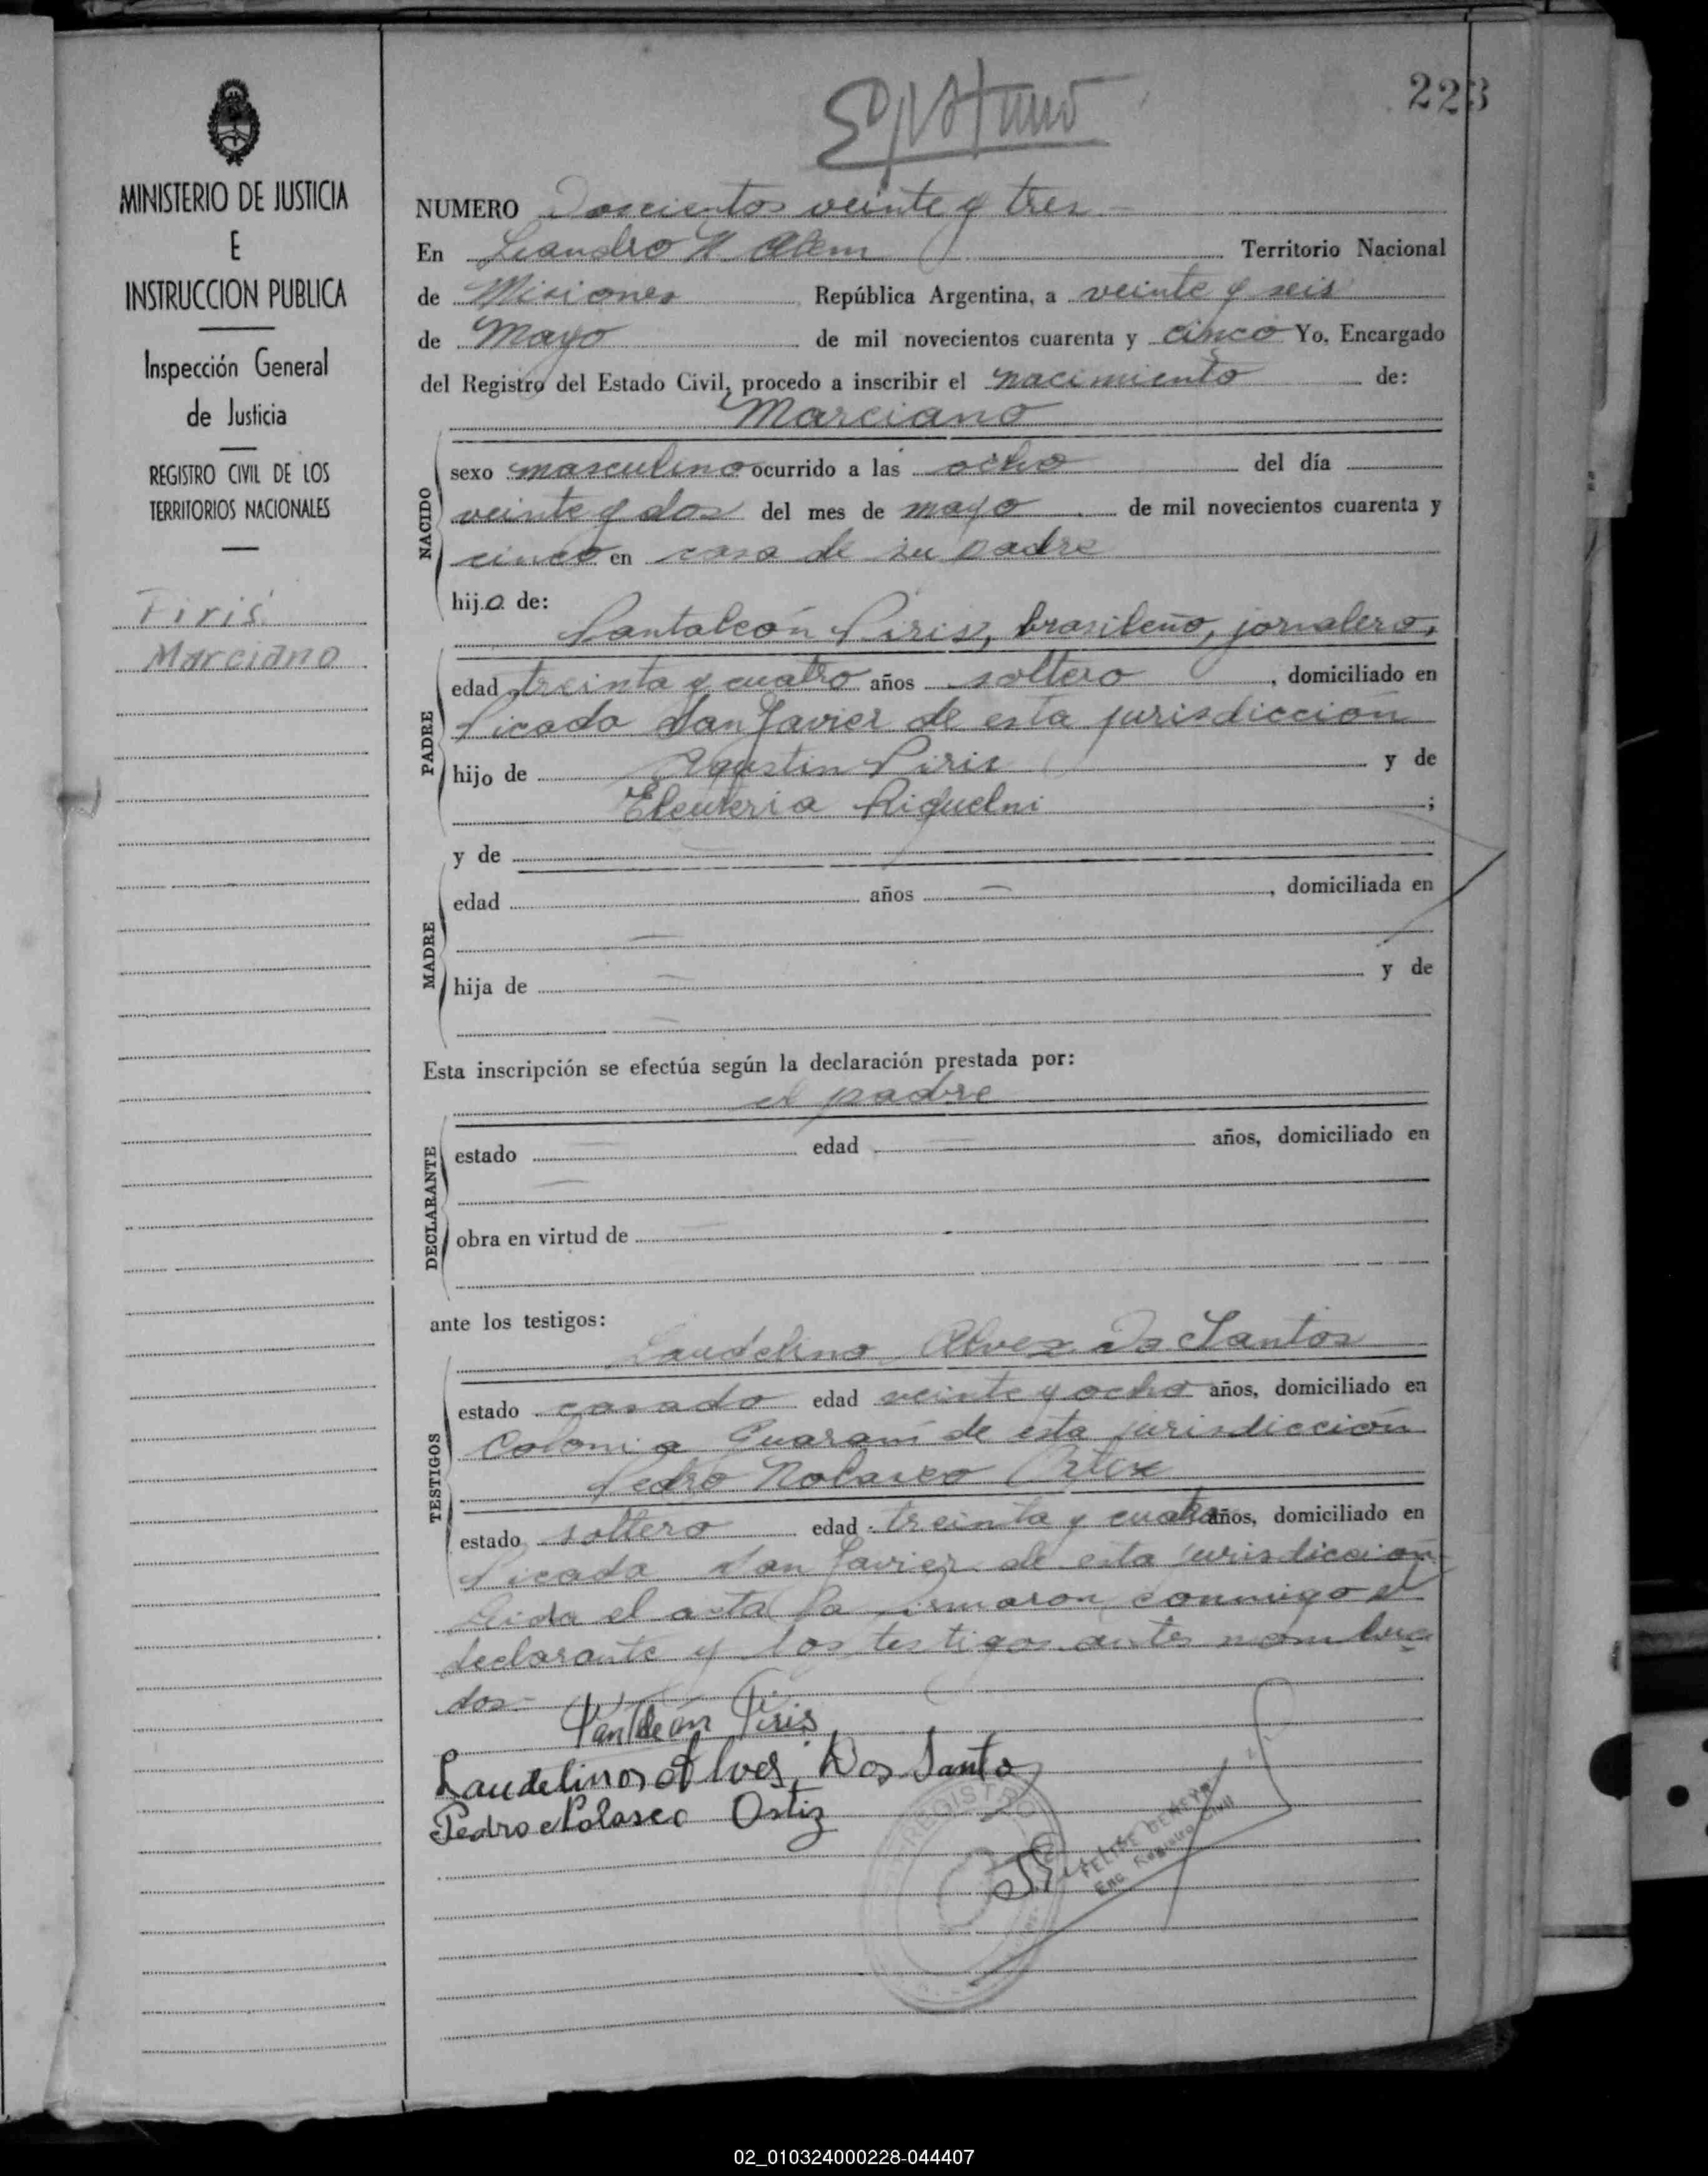 223
MINISTERIO DE JUSTICIA
E
INSTRUCCION PUBLICA
Inspección General
de Justicia
REGISTRO CIVIL DE LOS
TERRITORIOS NACIONALES
Piris
Marciano
NUMERO Doscientos veinte y tres
En Leandro N. Alem Territorio Nacional
de Misiones República Argentina, a veinte y seis
de Mayo de mil novecientos cuarenta y cinco Yo, Encargado
del Registro del Estado Civil, procedo a inscribir el nacimiento de:
Marciano
NACIDO
sexo masculino ocurrido a las ocho del día
veinte y dos del mes de mayo de mil novecientos cuarenta y
cinco en casa de su padre
hijo de:
Pantaleón Piris, brasileño, jornalero,
PADRE
edad treinta y cuatro años soltero, domiciliado en
Picada San Javier de esta jurisdicción
hijo de Agustin Piris y de
Eleuteria Riquelni;
MADRE
y de
edad años —, domiciliada en
—
hija de — y de
—
Esta inscripción se efectúa según la declaración prestada por:
el padre
DECLARANTE
estado — edad — años, domiciliado en
—
obra en virtud de —
ante los testigos:
Laudelino Alves Do Santos
TESTIGOS
estado casado edad veinte y ocho años, domiciliado en
Colonia Guaraní de esta jurisdicción
Pedro Nolasco Ortiz
estado soltero edad treinta y cuatro años, domiciliado en
Picada San Javier de esta jurisdicción
Leida el acta la firmaron conmigo el
declarante y los testigos antes nombra
dos.-
Pantaleón Piris
Laudelinos Alves Dos Santo
Pedro Nolasco Ortiz
REGISTRO
FELIPE
Enc. Registro Civil
02_010324000228-044407